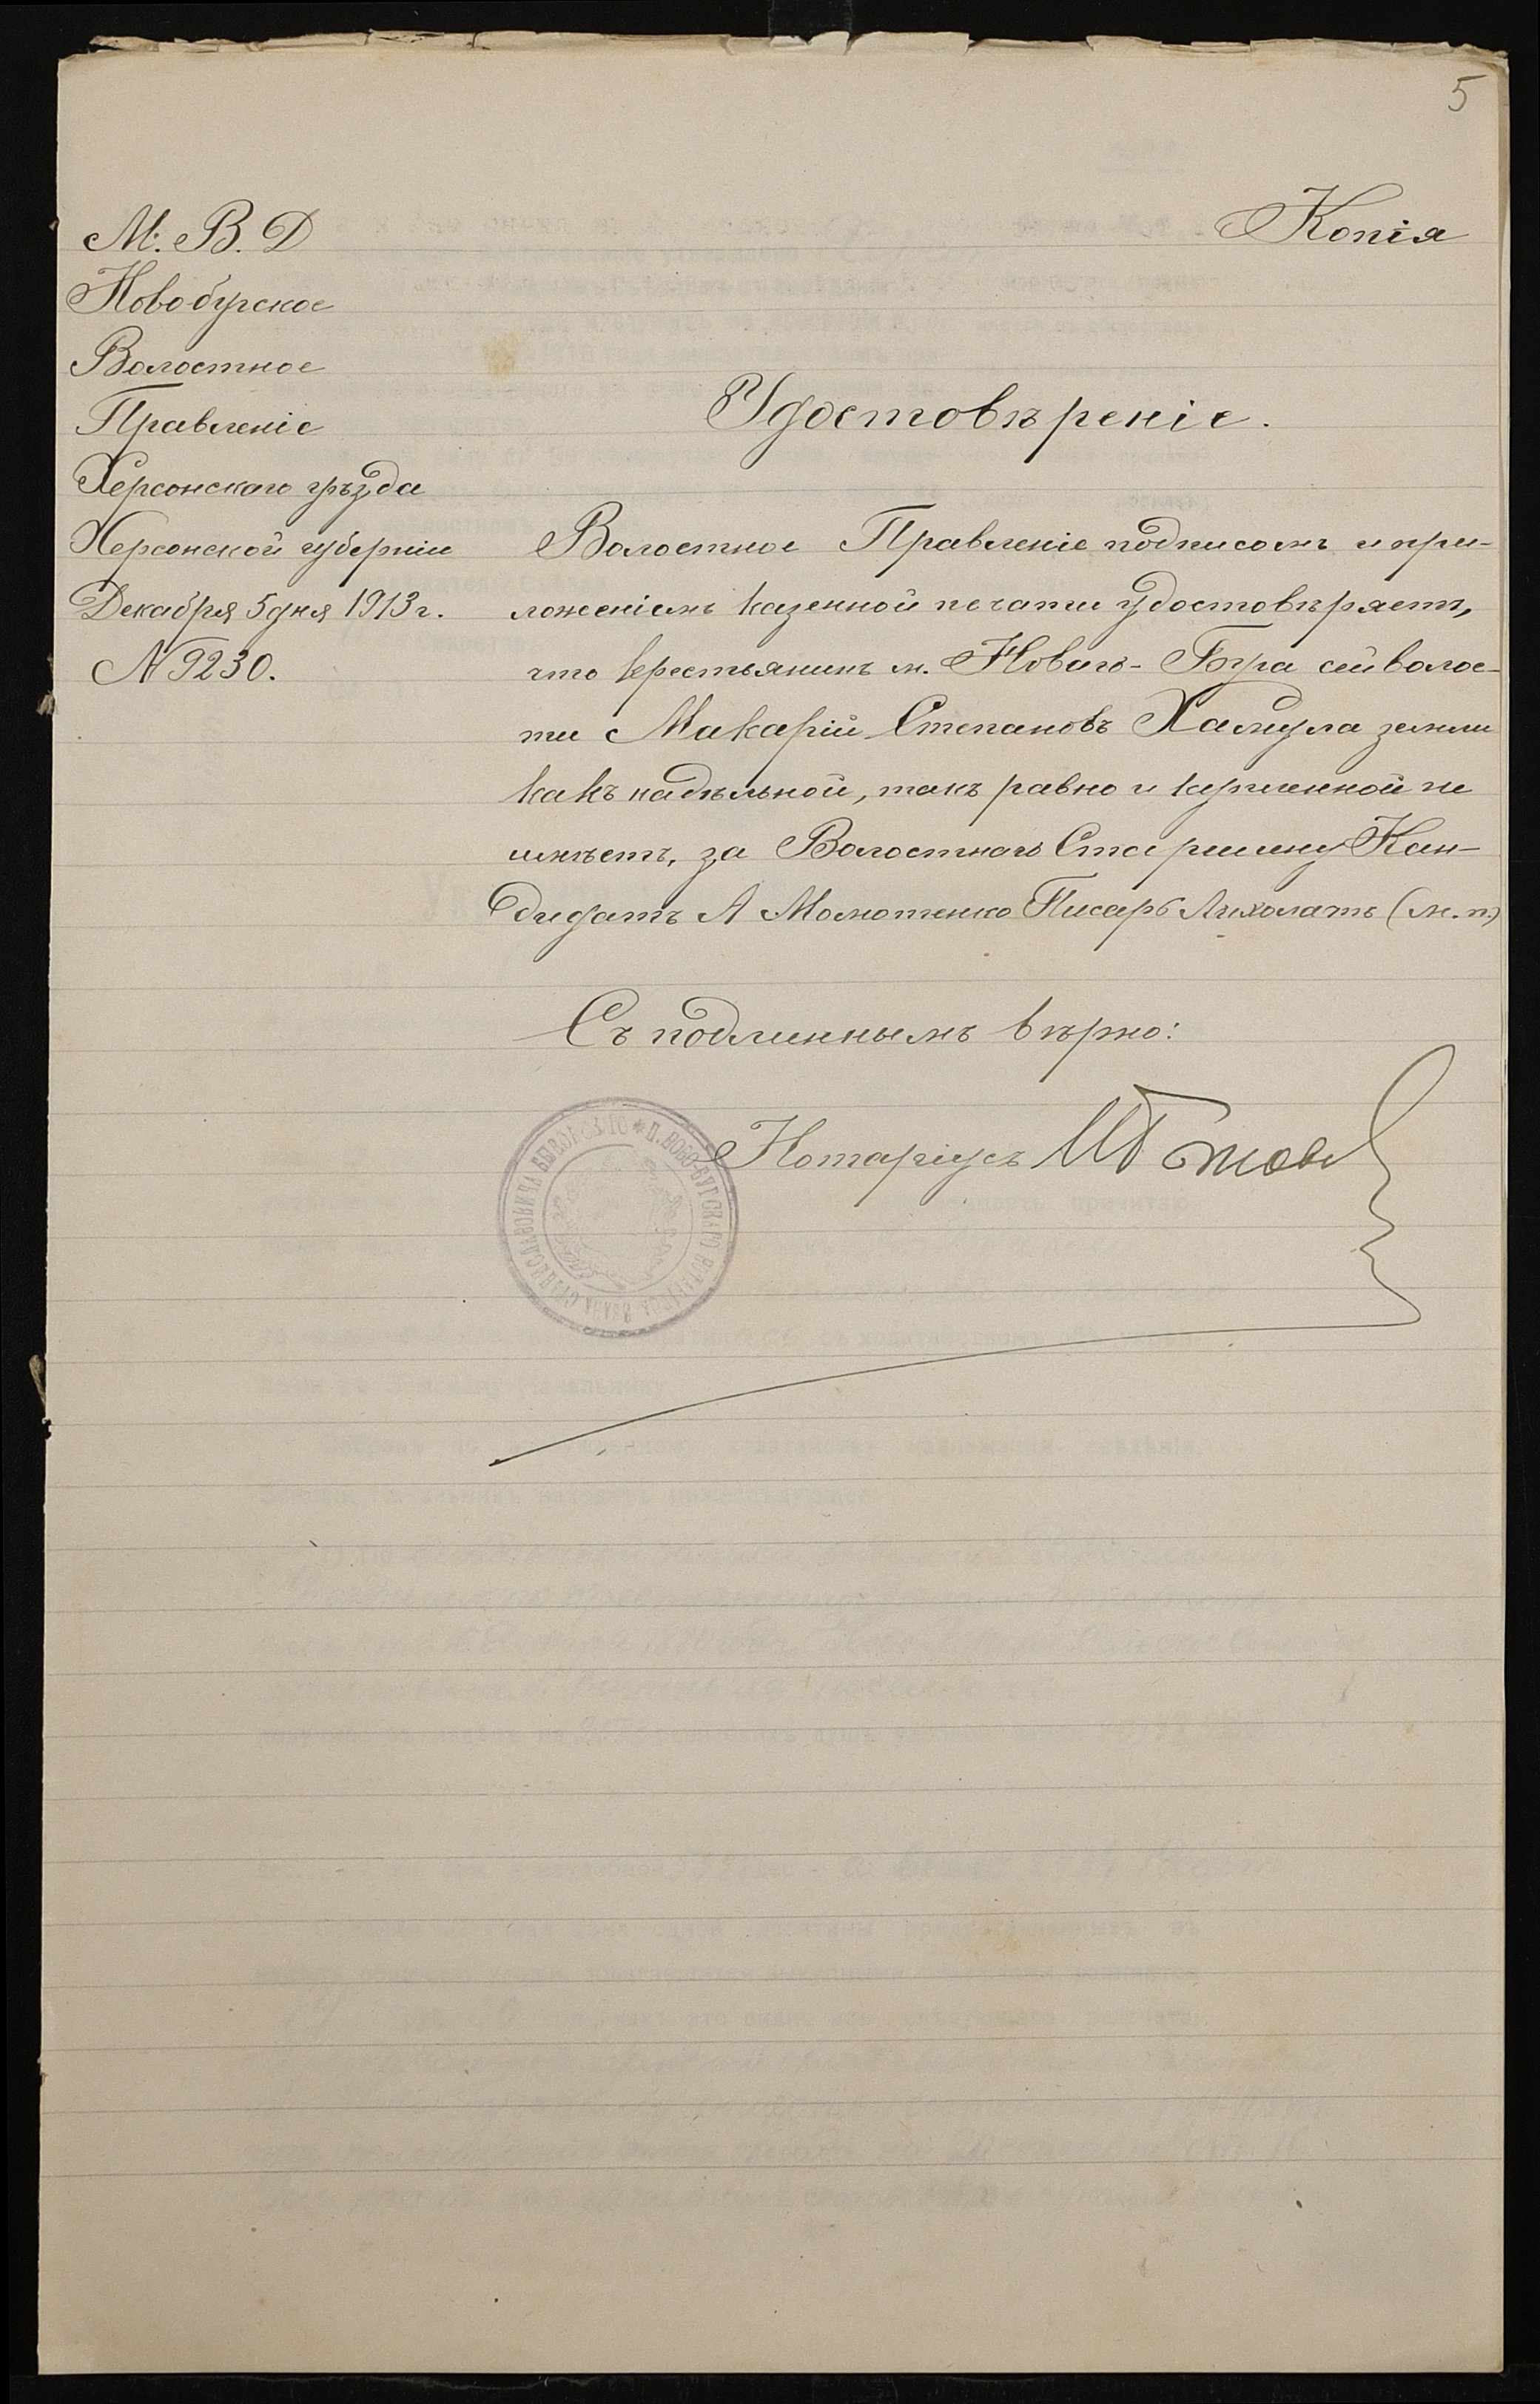 5
Копія
М. В. Д
Новобугское
Волостное
Правленіе
Херсонскаго уѣзда
Херсонской губерніи
Декабря 5 дня 1913 г.
N 9230.
Удостовѣреніе.
Волостное Правленіе подписомъ и при-
ложеніемъ казенной печати удостовѣряетъ,
что крестьянинъ м. Новаго-Буга сей волос-
ти Макарій Степановъ Хамула земли
какъ надѣльной, такъ равно и купленной не
имѣетъ, за Волостнаго Старшину Кан-
дидатъ А Момотенко Писарь Лихолатъ (м.п.)
Съ подлиннымъ вѣрно:
Нотаріусъ